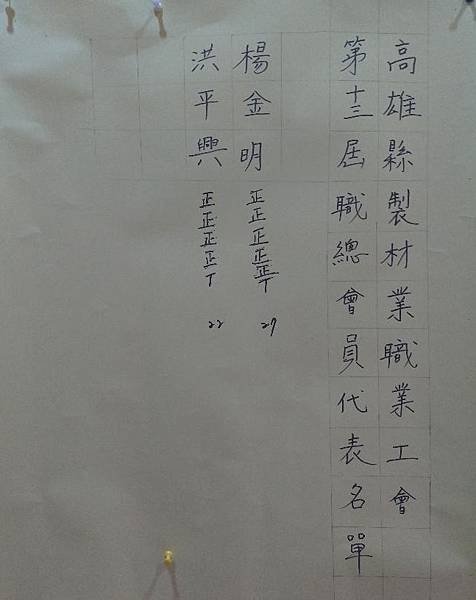 高雄縣製材業職業工會
第十三屆職總會員代表名單
楊金明 正正正正正丅 27
洪平興 正正正正丅 22